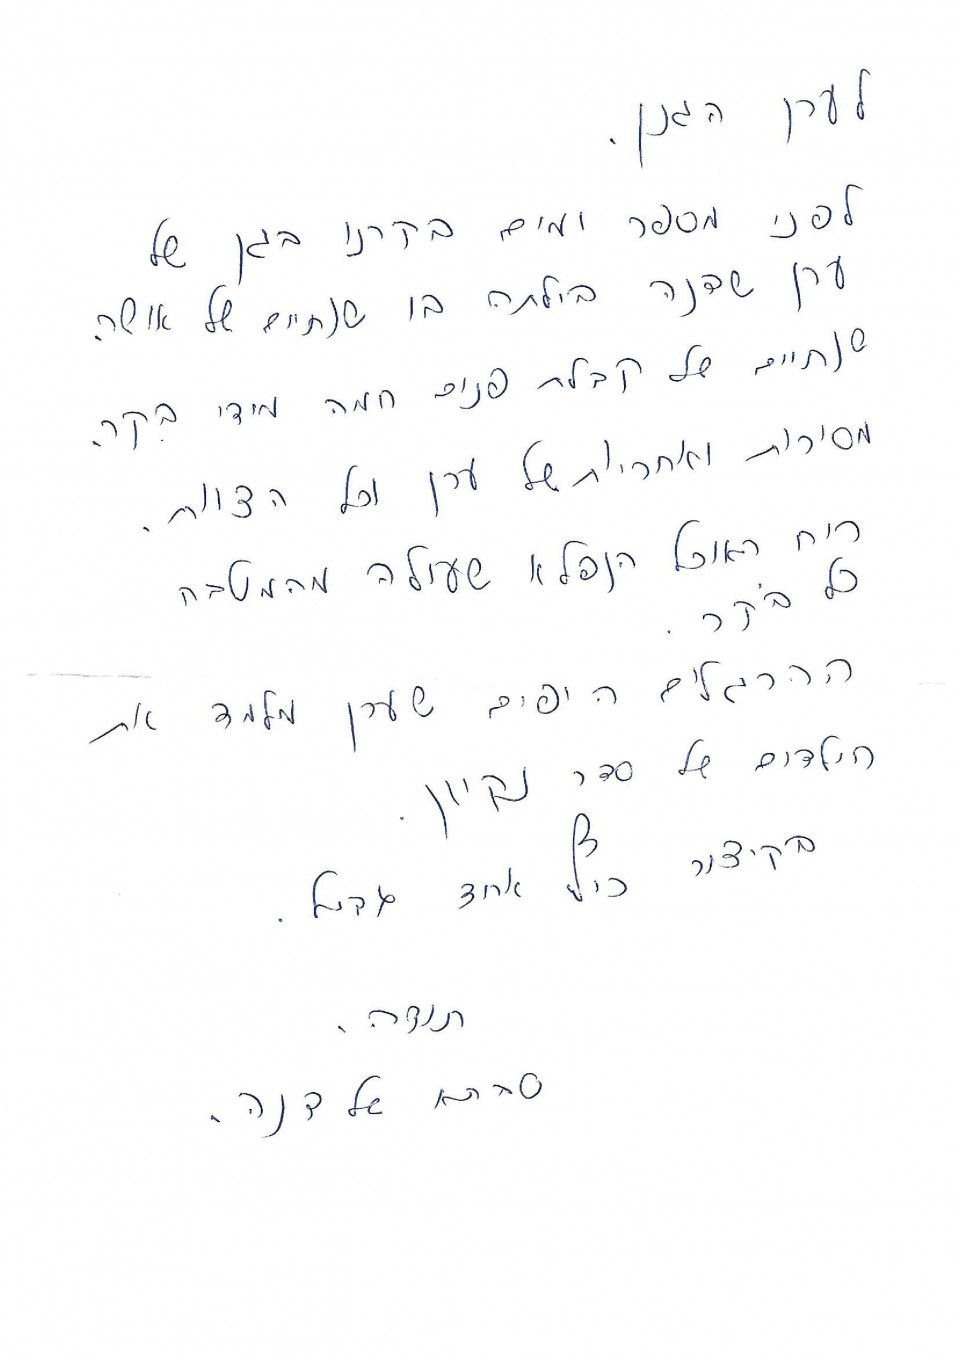 לערן הגנן.
לפני מספר ימים בקרנו בגן של
ערן שדנה בילתה בו שנתיים של אושר.
שנתיים של קבלת פנים חמה מידי בוקר.
מסירות ואחריות של ערן וכל הצוות.
ריח האוכל הנפלא שעולה מהמטבח
כל בוקר.
ההרגלים היפים שערן מלמד את
הילדים של סדר נקיון.
בקיצור כיף אחד גדול.
תודה.
סבתא של דנה.